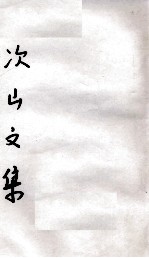 次山文集